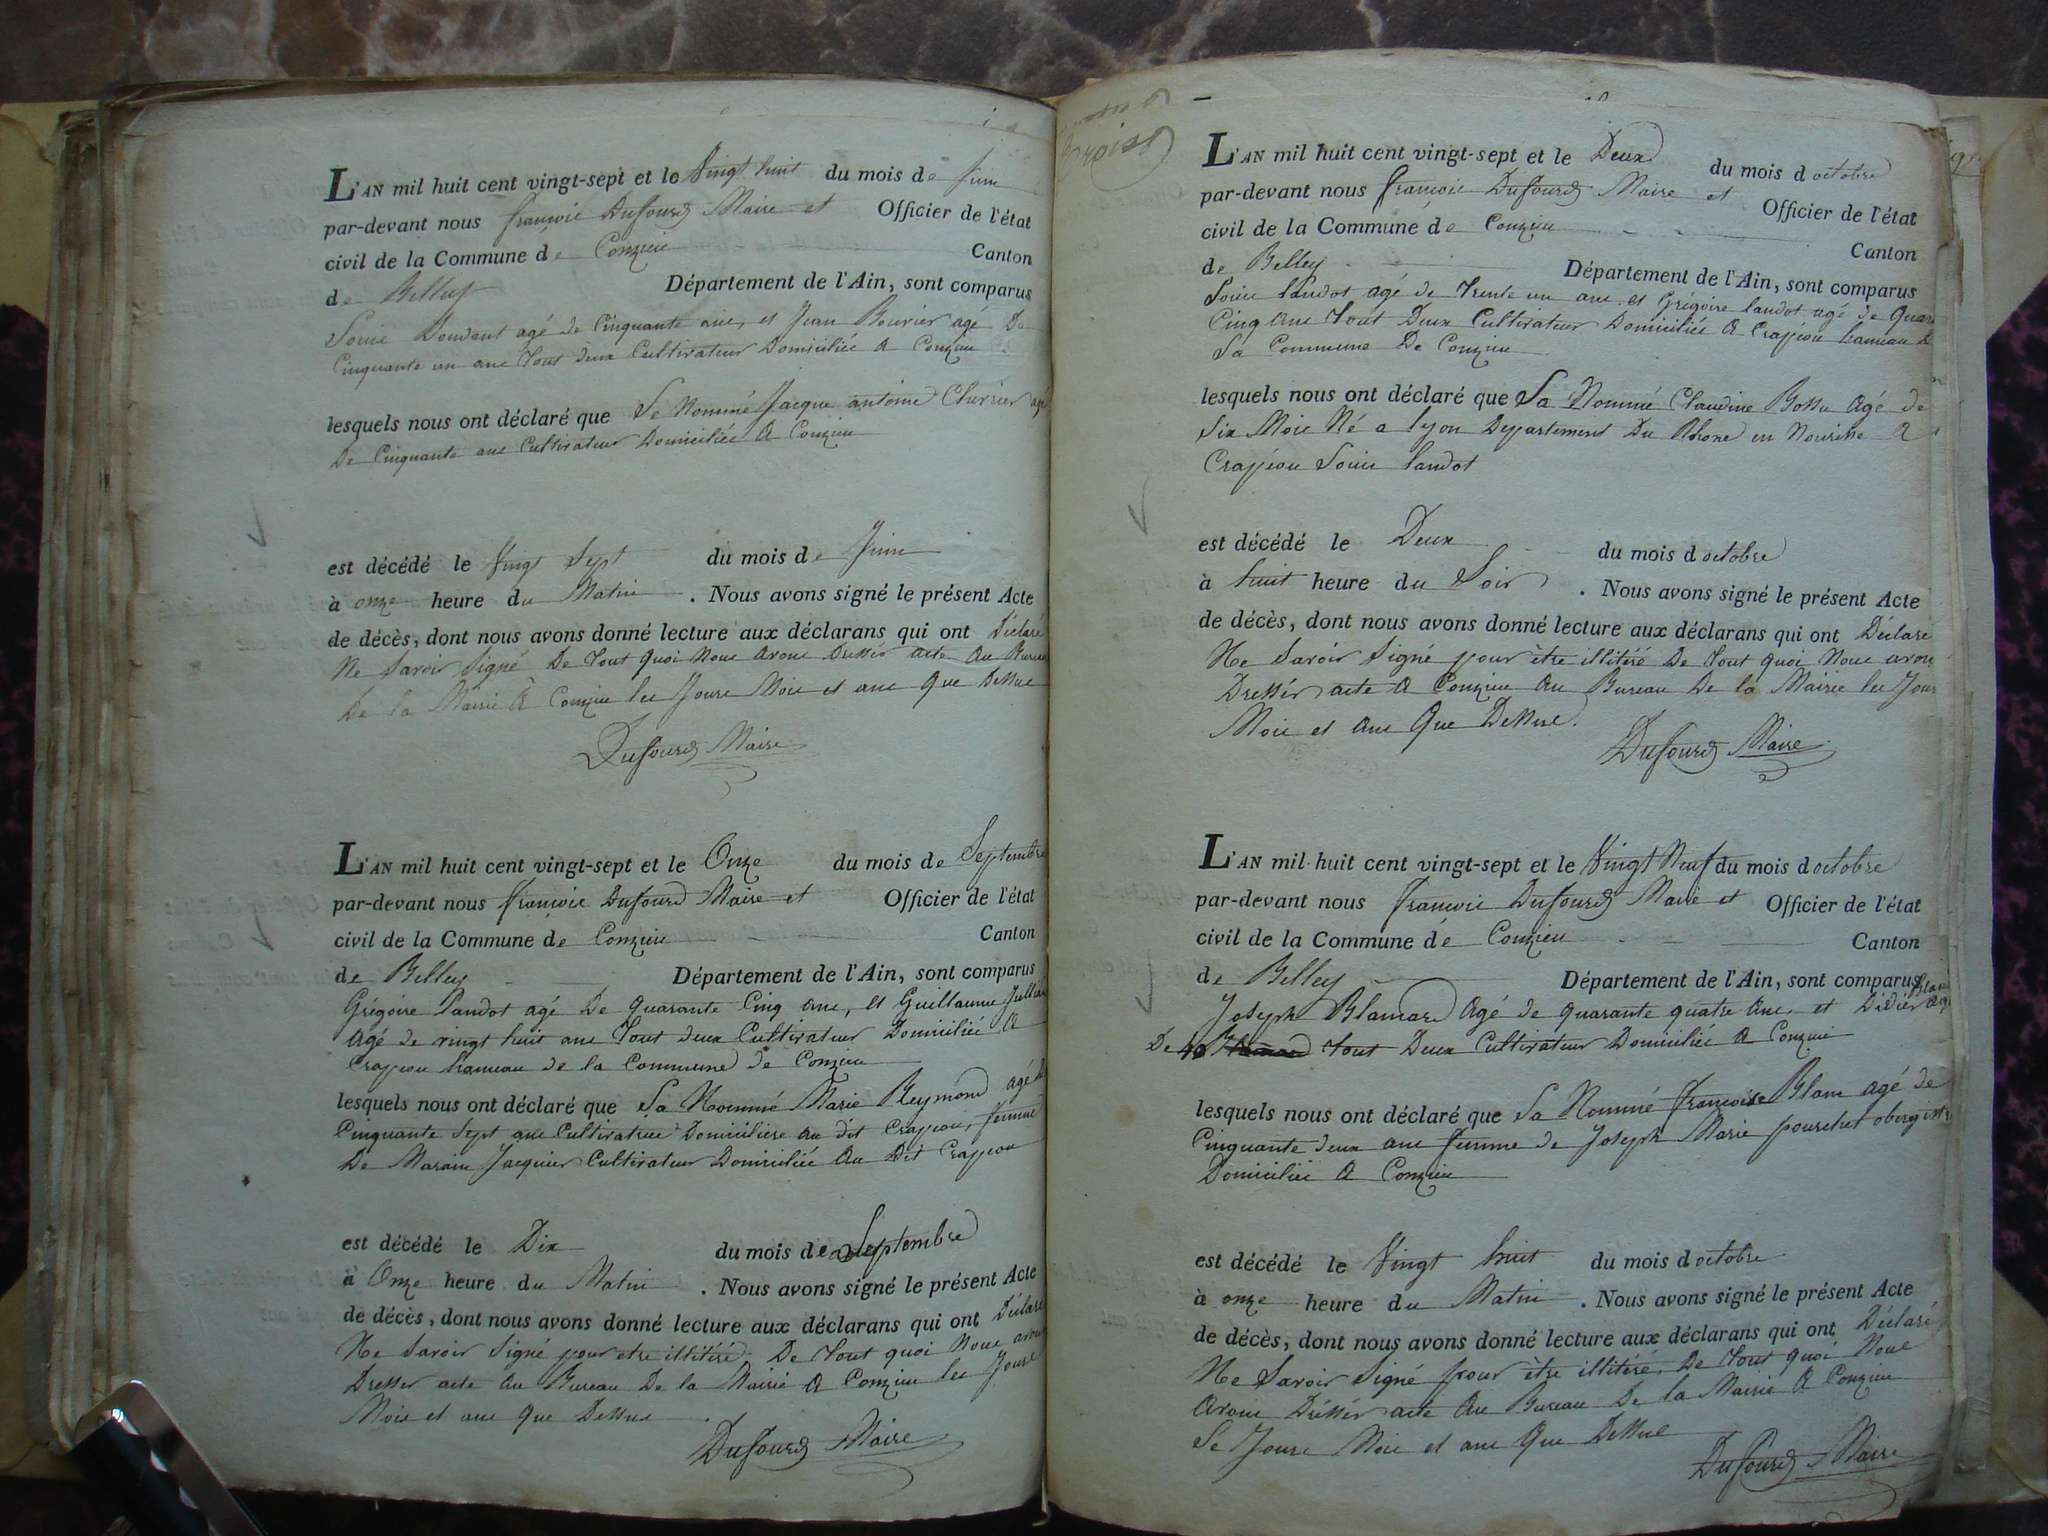 L'AN mil huit cent vingt-sept et le Vingt huit du mois de Juin
par-devant nous françoic Dufourd Maire et Officier de l'état
civil de la Commune de Conzieu Canton
de Belley Département de l'Ain, sont comparus
Louic Doudent agé de Cinquante anc, et Jean Bouvier agé De
Cinquante un anc Tout deux Cultivateur Domiciliée a Conzieu
lesquels nous ont déclaré que Le Nommé Jacque antoine Chevrier agé
De Cinquante anc Cultivateur Domiciliée a Conzieu
est décédé le Vingt Sept du mois de Juin
à onze heure du Matin . Nous avons signé le présent Acte
de décès, dont nous avons donné lecture aux déclarans qui ont Déclaré
Ne Savoir Signé De Tout quoi Nouc avonc Dressér acte Au Bureau
De la Mairie a Conzieu lec Jourc Moic et anc Que Dessuc
Dufourd Maire
L'AN mil huit cent vingt-sept et le Onze du mois de Septembre
par-devant nous françoic Dufourd Maire et Officier de l'état
civil de la Commune de Conzieu Canton
de Belley Département de l'Ain, sont comparus
Grégoire landot agé De quarante Cinq anc, et Guillaume Jullian
agé de vingt huit anc Tout deux Cultivateur Domiciliée a
Crapieou hameau de la Commune de Conzieu
lesquels nous ont déclaré que La Nommé Marie Reymond agé de
Cinquante Sept anc Cultivatrice Domicilière au dit Crapieou, femme
De Marain Jacquier Cultivateur Domiciliée Au Dit Crapieou
est décédé le Dix du mois de Septembre
à Onze heure du Matin . Nous avons signé le présent Acte
de décès, dont nous avons donné lecture aux déclarans qui ont Déclaré
Ne Savoir Signé pour etre illitéré De Tout quoi Nouc avonc
Dresser acte Au Bureau De la Mairie a Conzieu lec Jourc
Moic et anc Que Dessuc
Dufourd Maire
L'AN mil huit cent vingt-sept et le Deux du mois d octobre
par-devant nous françoic Dufourd Maire et Officier de l'état
civil de la Commune de Conzieu Canton
de Belley Département de l'Ain, sont comparus
Louic landot agé de Trente un anc et Grégoire landot agé de Quarante
Cinq anc Tout Deux Cultivateur Domiciliée a Crapieou hameau De
La Commune De Conzieu
lesquels nous ont déclaré que La Nommé Claudine Bossu agé de
Six Moic Né a lyon Département Du Rhone en Nourisse a
Crapieou Louic landot
est décédé le Deux du mois d octobre
à huit heure du Soir . Nous avons signé le présent Acte
de décès, dont nous avons donné lecture aux déclarans qui ont Déclaré
Ne Savoir Signé pour ètre illitéré De Tout quoi Nouc avonc
Dressér acte a Conzieu Au Bureau De la Mairie lec Jour
Moic et anc Que Dessuc.
Dufourd Maire
L'AN mil huit cent vingt-sept et le Vingt Neuf du mois d octobre
par-devant nous françoic Dufourd Maire et Officier de l'état
civil de la Commune de Conzieu Canton
de Belley Département de l'Ain, sont comparus
Joseph Blamard Agé de quarante quatre anc, et Didier agé
De 40 Tout Deux Cultivateur Domiciliée a Conzieu
lesquels nous ont déclaré que La Nommé françoise Blanc agé de
Cinquante deux anc femme de Joseph Marie pourchet obergiste
Domiciliée a Conzieu
est décédé le Vingt huit du mois d octobre
à onze heure du Matin . Nous avons signé le présent Acte
de décès, dont nous avons donné lecture aux déclarans qui ont Déclaré
Ne Savoir Signé pour ètre illitéré, De Tout quoi Nouc
avonc Dréssér acte Au Bureau De la Mairie a Conzieu
Le Jourc Moic et anc Que Dessuc
Dufourd Maire